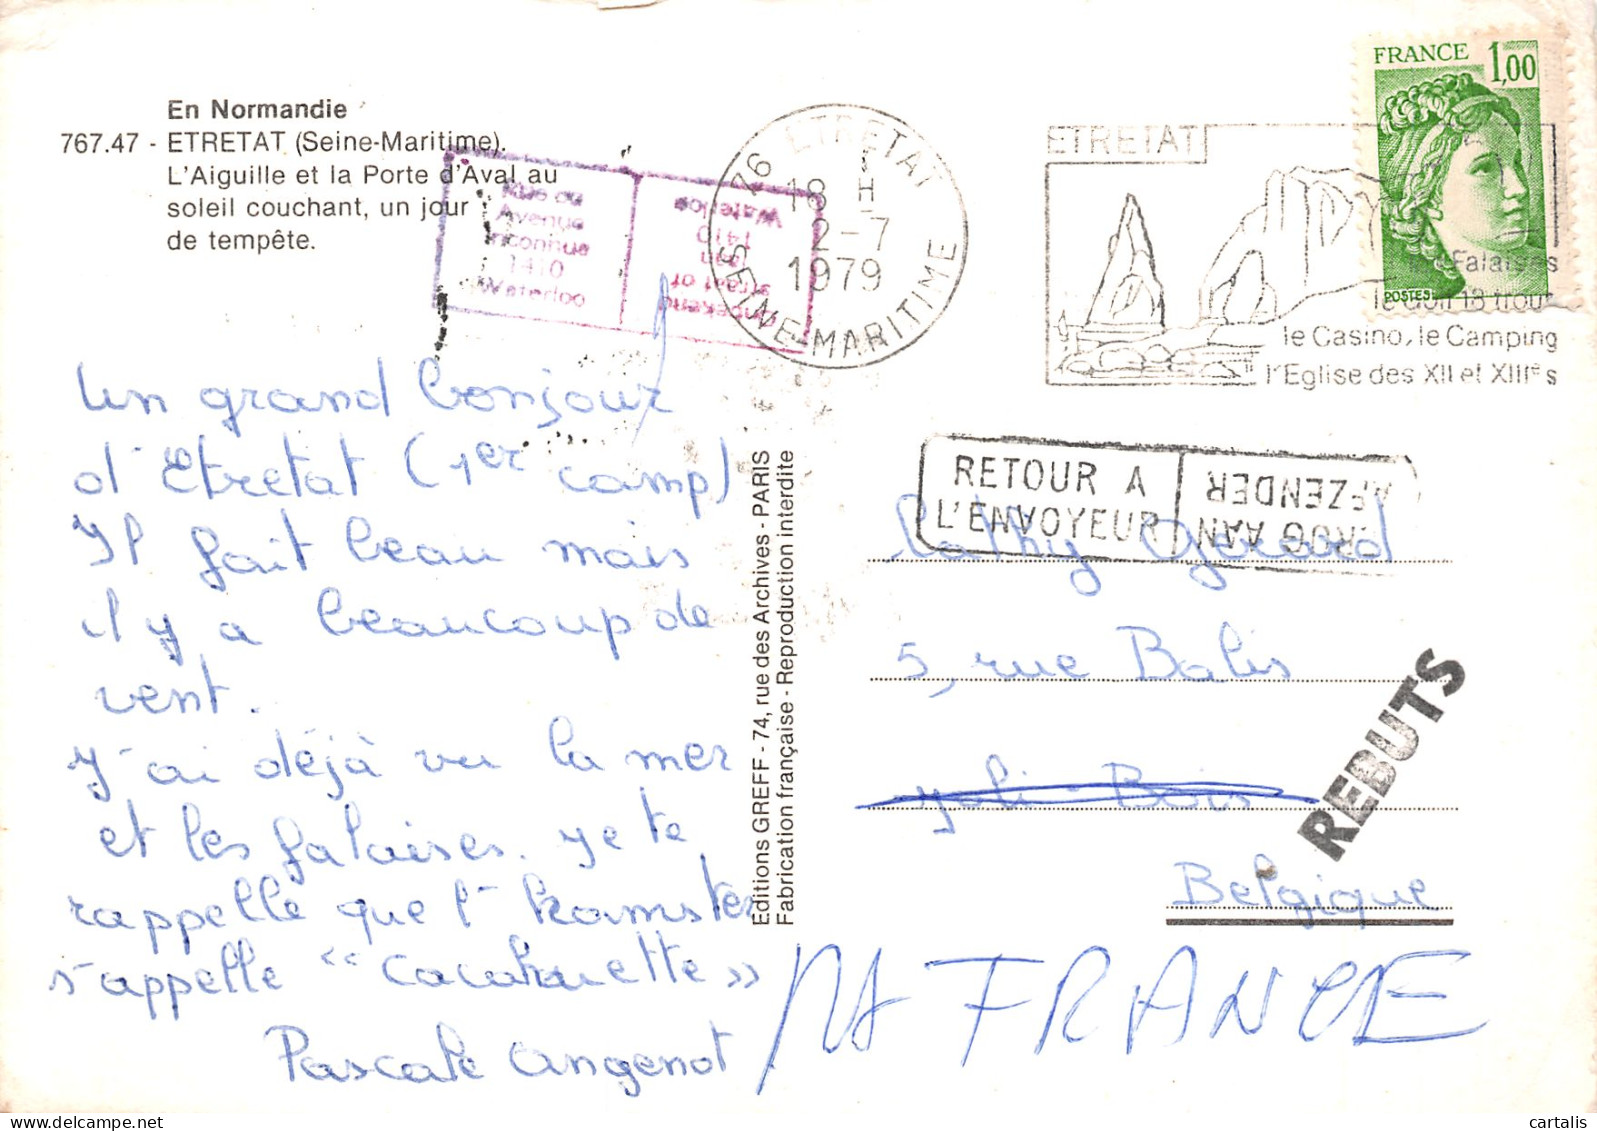 En Normandie
767.47 - ETRETAT (Seine-Maritime).
L'Aiguille et la Porte d'Aval au
soleil couchant, un jour
de tempête.
Rue ou
Avenue
inconnue
1410
Waterloo
Onbekend
straat of
laan
1410
Waterloo
76 ETRETAT
18 H
2-7
1979
SEINE-MARITIME
ETRETAT
Falaises
le Golf 18 trous
le Casino, le Camping
l'Eglise des XII et XIIIe s
FRANCE 1,00
POSTES
Un grand bonjour
d'Etretat (1er camp)
Il fait beau mais
il y a beaucoup de
vent.
J'ai déjà vu la mer
et les falaises. Je te
rappelle que l'hamster
s'appelle "Cacahuette"
Pascale Angenot
Editions GREFF - 74, rue des Archives - PARIS
Fabrication française - Reproduction interdite
RETOUR A
L'ENVOYEUR
TERUG AAN
AFZENDER
Cathy Gérard
5, rue Balis
Joli-Bois
Belgique
REBUTS
FRANCE
cartalis @ delcampe.net